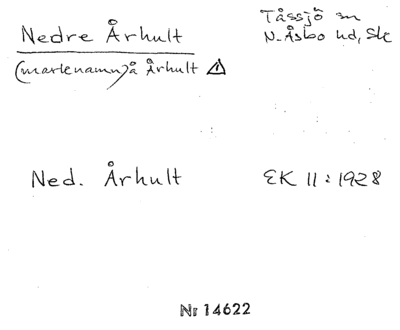 Nedre Århult
Tåssjö sn
N. Åsbo hd, Sk
(marknamn) å Århult
Ned. Århult
EK 11:1928
Nr 14622